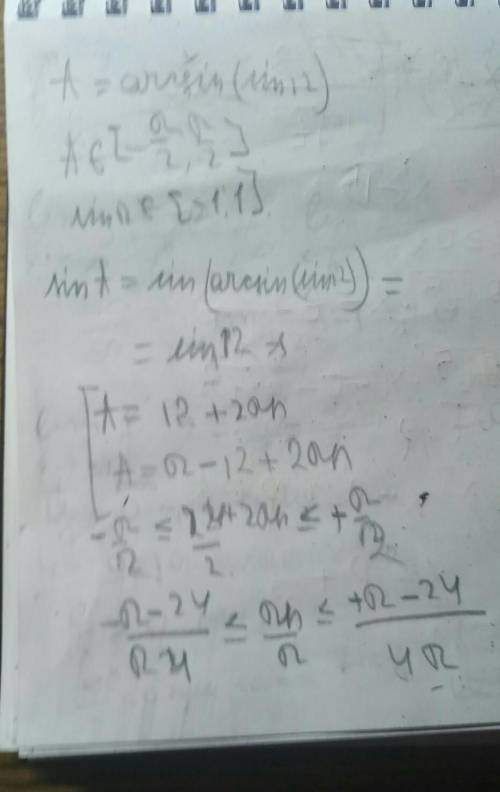 A = arcsin(sin12)
A ∈ [-π/2, π/2]
sin A ∈ [-1, 1]
sin A = sin(arcsin(sin12)) =
= sin12
A = 12 + 2πn
A = π - 12 + 2πn
-π/2 ≤ 12 + 2πn ≤ +π/2
(-π - 24)/(π4) ≤ πn/π ≤ (+π - 24)/(4π)